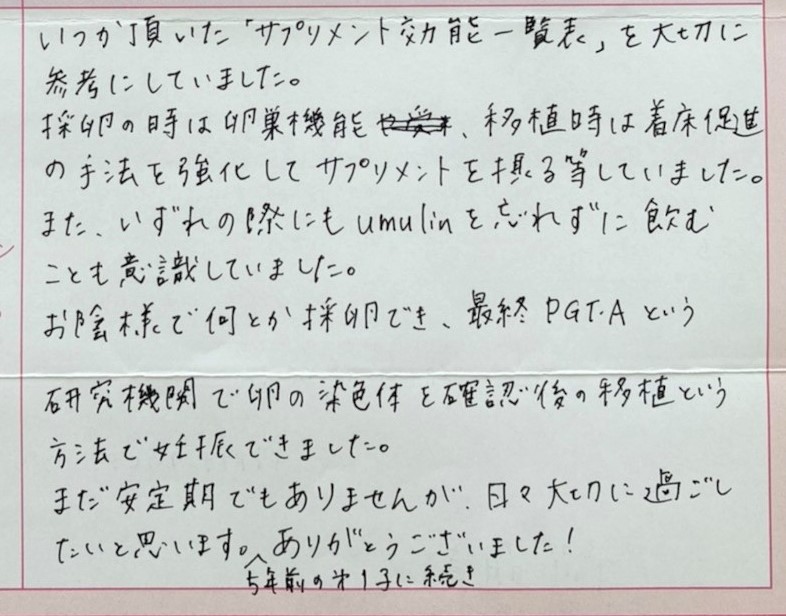 いつか頂いた「サプリメント効能一覧表」を大切に
参考にしていました。
採卵の時は卵巣機能、移植時は着床促進
の手法を強化してサプリメントを摂る等していました。
また、いずれの際にもumulinを忘れずに飲む
ことも意識していました。
お陰様で何とか採卵でき、最終PGT-Aという
研究機関で卵の染色体を確認後の移植という
方法で妊娠できました。
まだ安定期でもありませんが、日々大切に過ごし
たいと思います。ありがとうございました!
5年前の第1子に続き